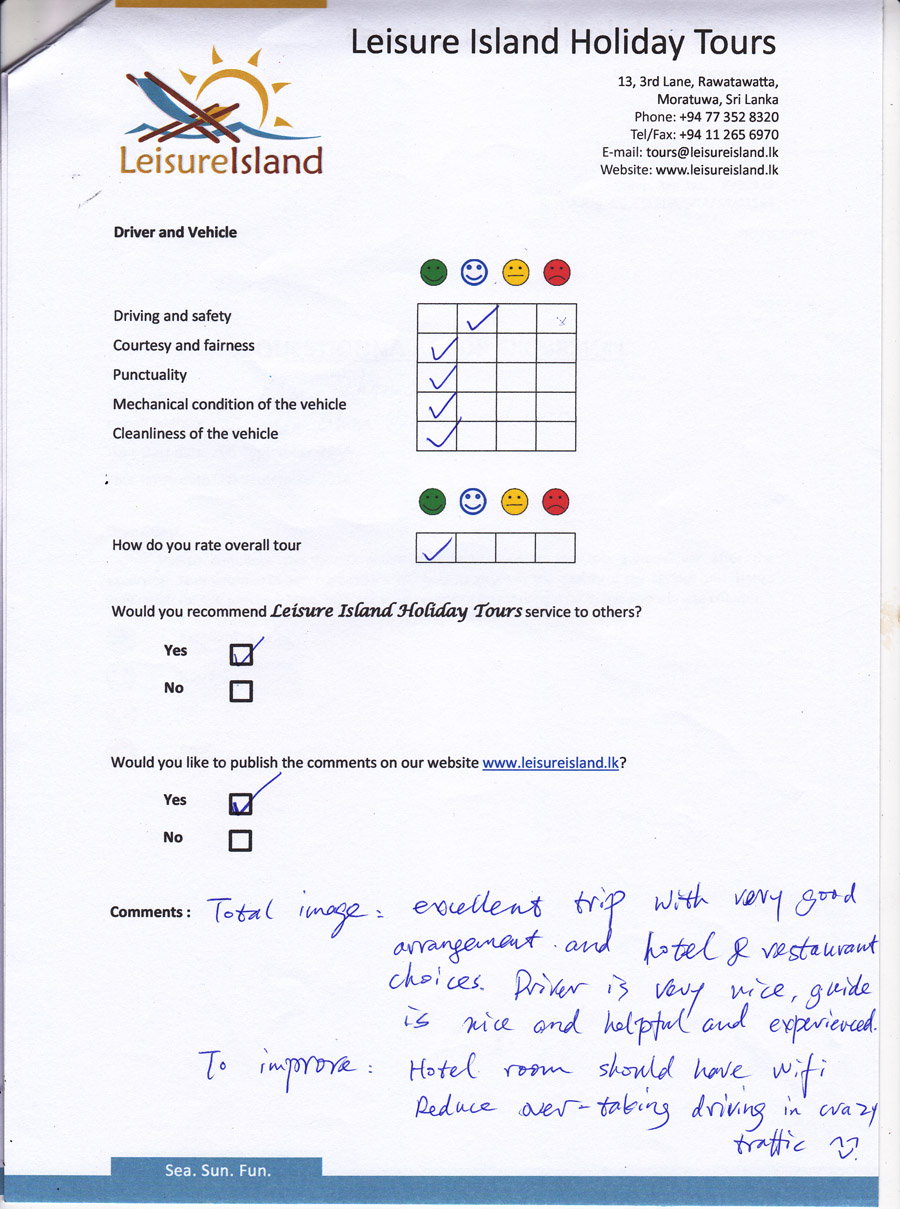 Leisure Island Holiday Tours
13, 3rd Lane, Rawatawatta,
Moratuwa, Sri Lanka
Phone: +94 77 352 8320
Tel/Fax: +94 11 265 6970
E-mail: tours@leisureisland.lk
Website: www.leisureisland.lk
LeisureIsland
Driver and Vehicle
Driving and safety
Courtesy and fairness
Punctuality
Mechanical condition of the vehicle
Cleanliness of the vehicle
How do you rate overall tour
Would you recommend Leisure Island Holiday Tours service to others?
Yes
No
Would you like to publish the comments on our website www.leisureisland.lk?
Yes
No
Comments : Total image : excellent trip with very good
arrangement and hotel & restaurant
choices. Driver is very nice, guide
is nice and helpful and experienced.
To improve : Hotel room should have wifi
Reduce over-taking driving in crazy
traffic
Sea. Sun. Fun.